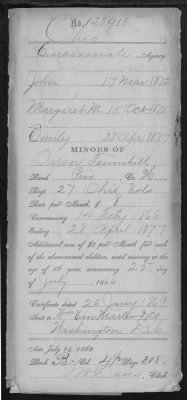 No. 123913
Ohio
Cincinnati Agency.
John 17 Mar 1872
Margaret M. 15 Oct 1875
Emily 28 Apr 1877
MINORS OF
Orren Tannehill
Rank Priv Co. K
Regt 27 Ohio Vols
Rate per Month $ 8
Commencing 14 Feby 1866
Ending 28 April 1877
Additional sum of $2 per Month for each
of the abovenamed children, until arriving at the
age of 16 years, commencing 25 day
of July 1866
Certificate dated 26 Jany 1869
Sent to Wm Van Marter &Co.
Washington D.C.
Act: July 14, 1862.
Book B. Vol. 4 Page 308.
Clerk.